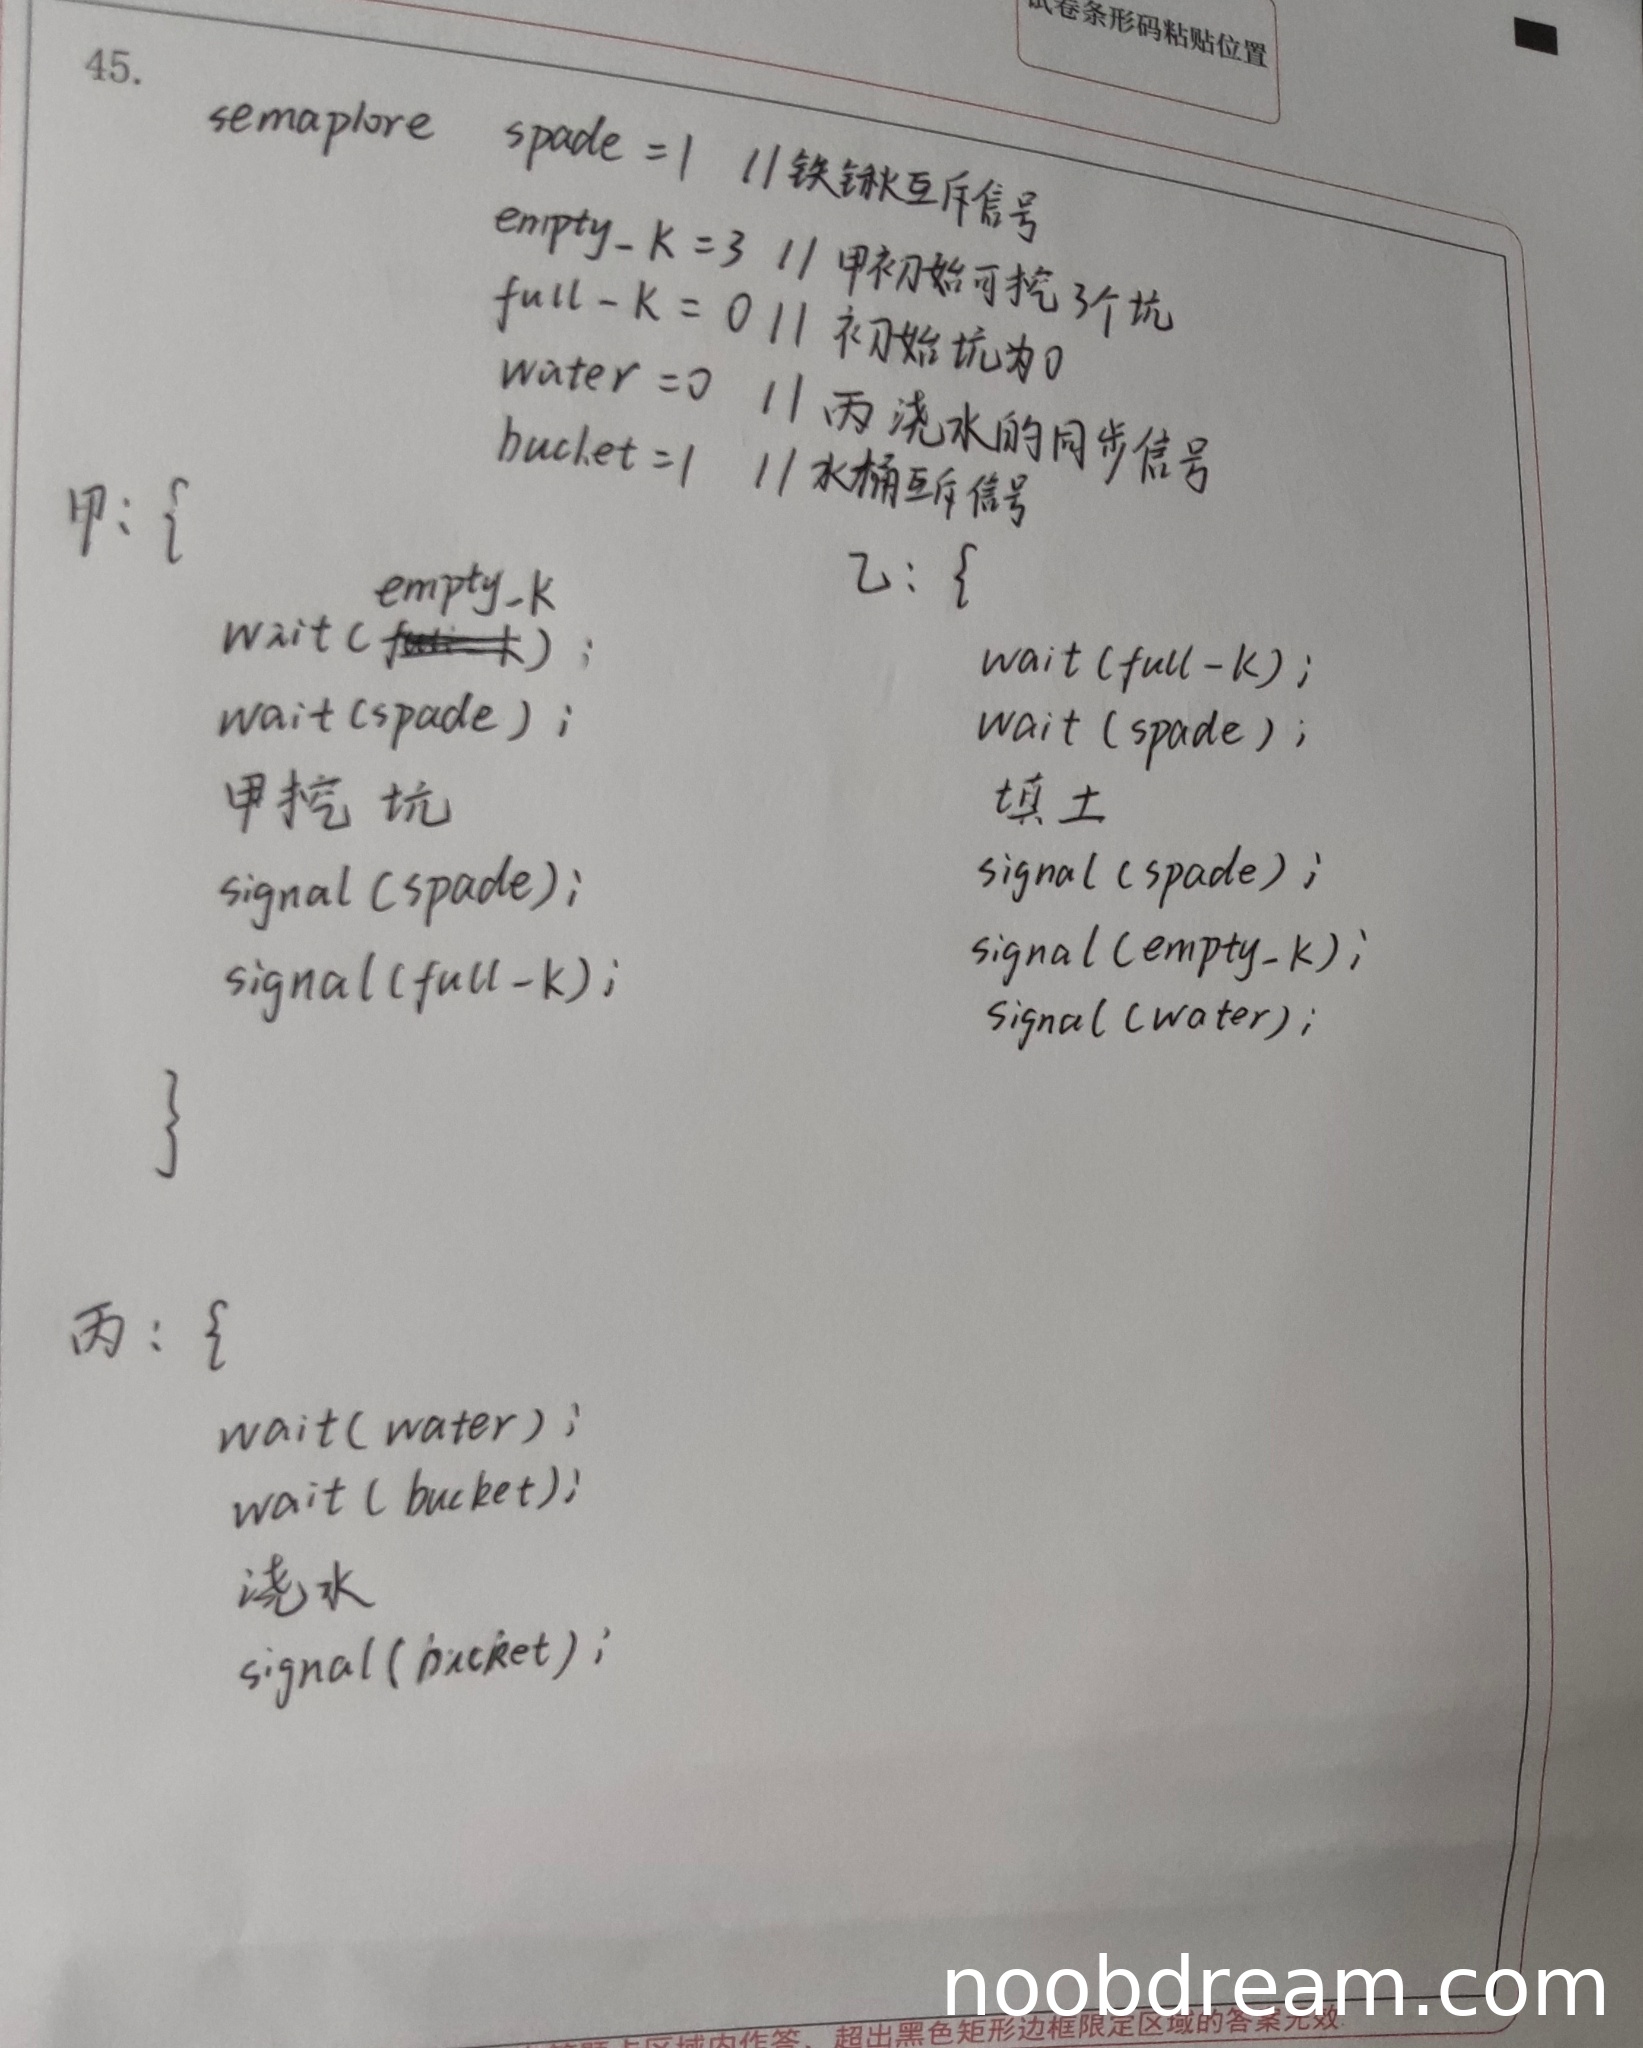 试卷条形码粘贴位置
45.
semaplore spade =1 //铁锹互斥信号
empty_K =3 // 甲初始可挖3个坑
full-K = 0 // 初始坑为0
water =0 // 丙浇水的同步信号
bucket =1 //水桶互斥信号
甲: {
empty_K
wait( );
wait(spade);
甲挖坑
signal(spade);
signal(full-K);
}
乙: {
wait(full-K);
wait(spade);
填土
signal(spade);
signal(empty_K);
signal(water);
丙: {
wait(water);
wait(bucket);
浇水
signal(bucket);
noobdream.com
答题卡区域内作答，超出黑色矩形边框限定区域的答案无效